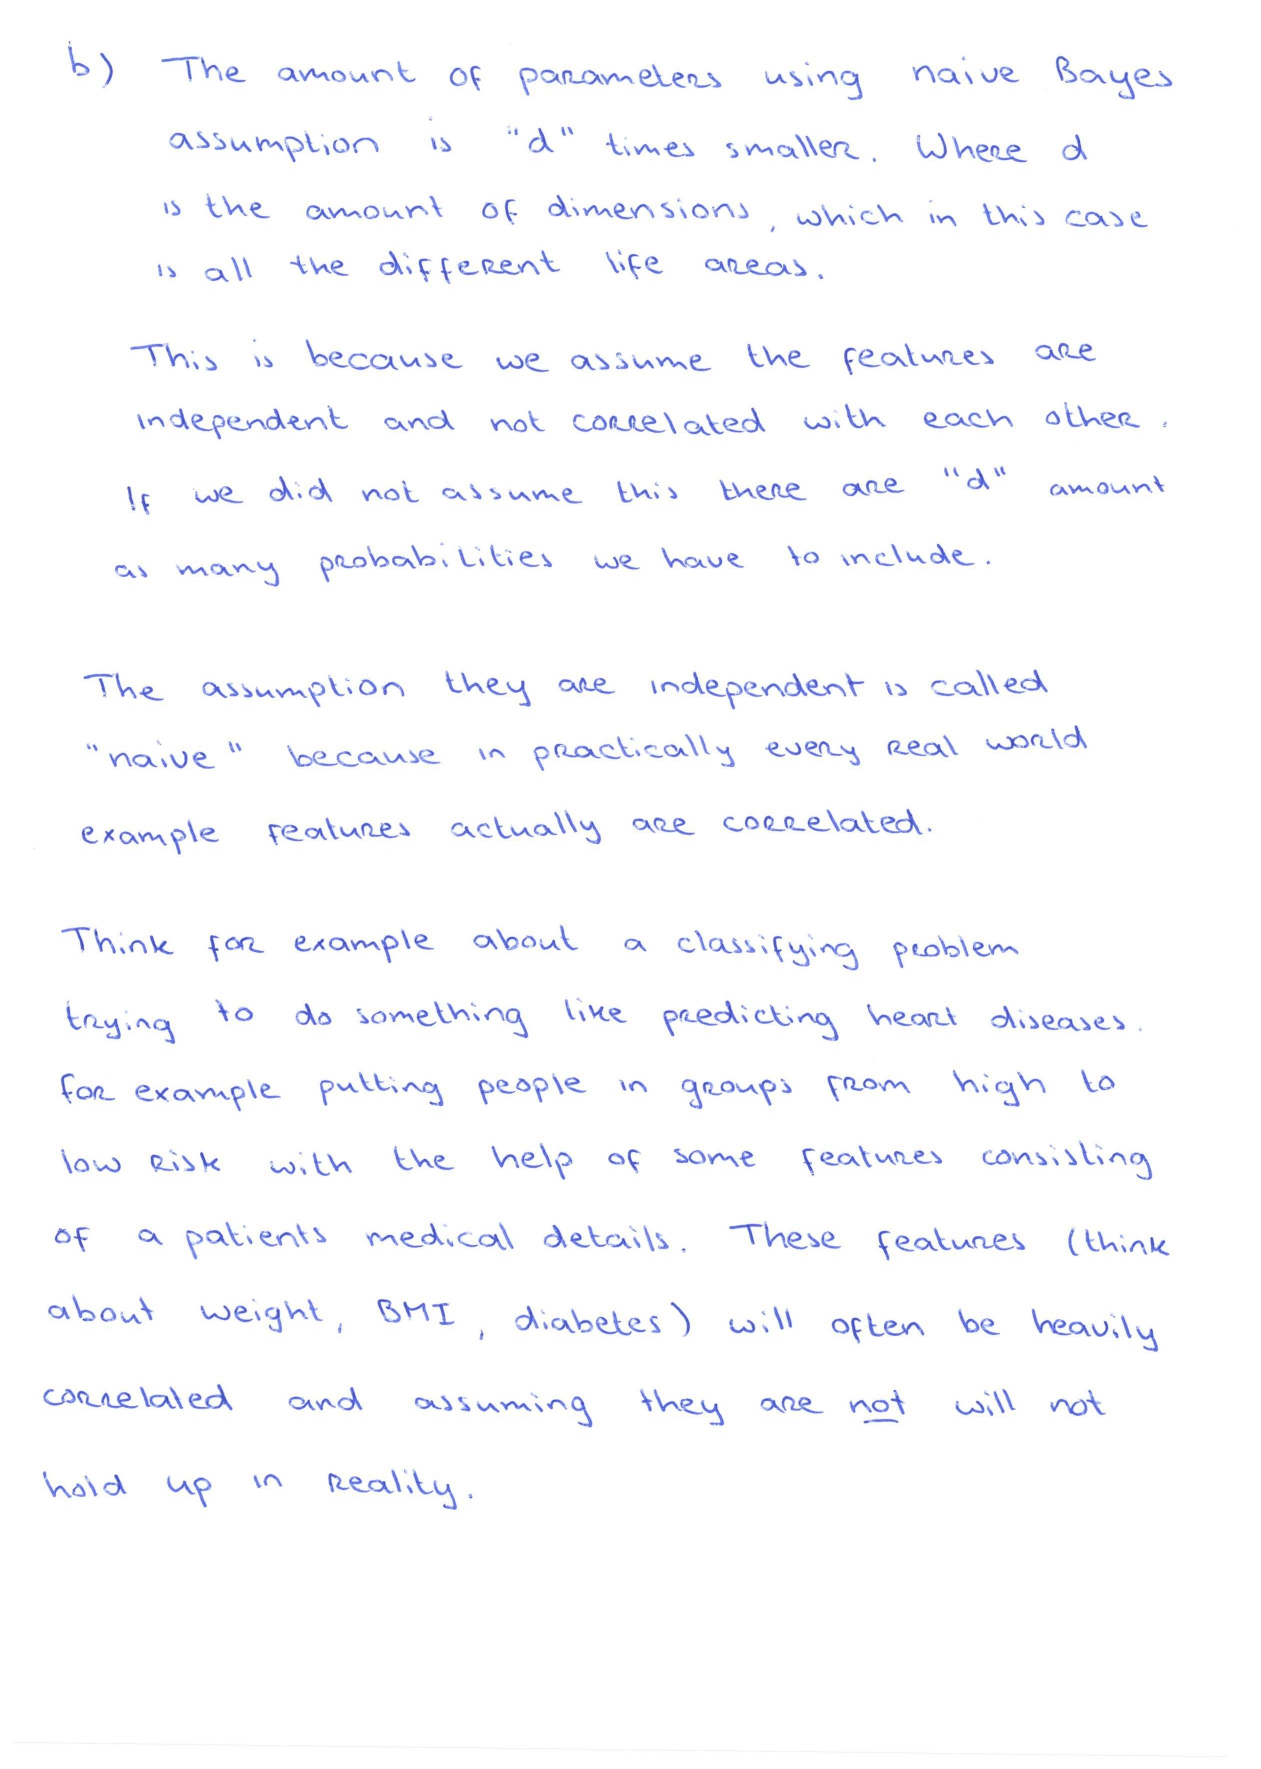 b) The amount of parameters using naive Bayes
assumption is "d" times smaller. Where d
is the amount of dimensions, which in this case
is all the different life areas.
This is because we assume the features are
independent and not correlated with each other.
If we did not assume this there are "d" amount
as many probabilities we have to include.
The assumption they are independent is called
"naive" because in practically every real world
example features actually are correlated.
Think for example about a classifying problem
trying to do something like predicting heart diseases.
for example putting people in groups from high to
low risk with the help of some features consisting
of a patients medical details. These features (think
about weight, BMI, diabetes) will often be heavily
correlated and assuming they are not will not
hold up in reality.